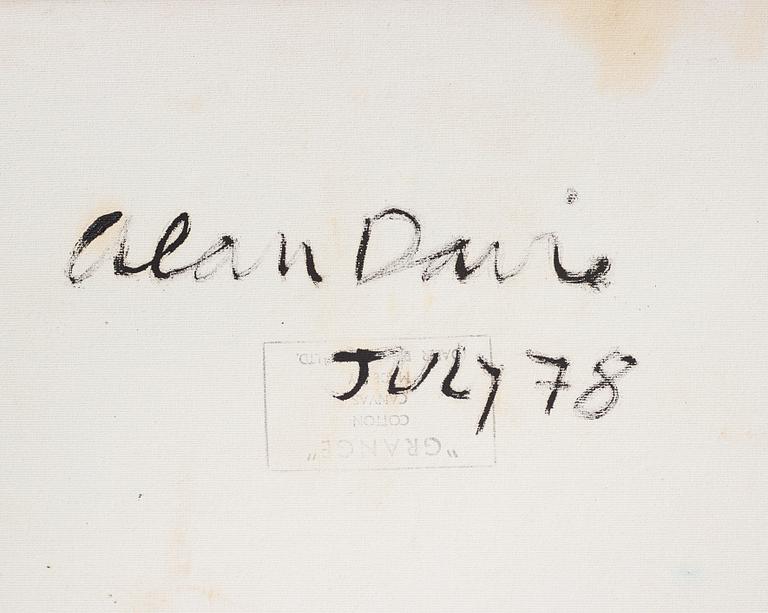 alan Davie
JULY 78
"GRANGE"
COTTON
CANVAS
LTD.